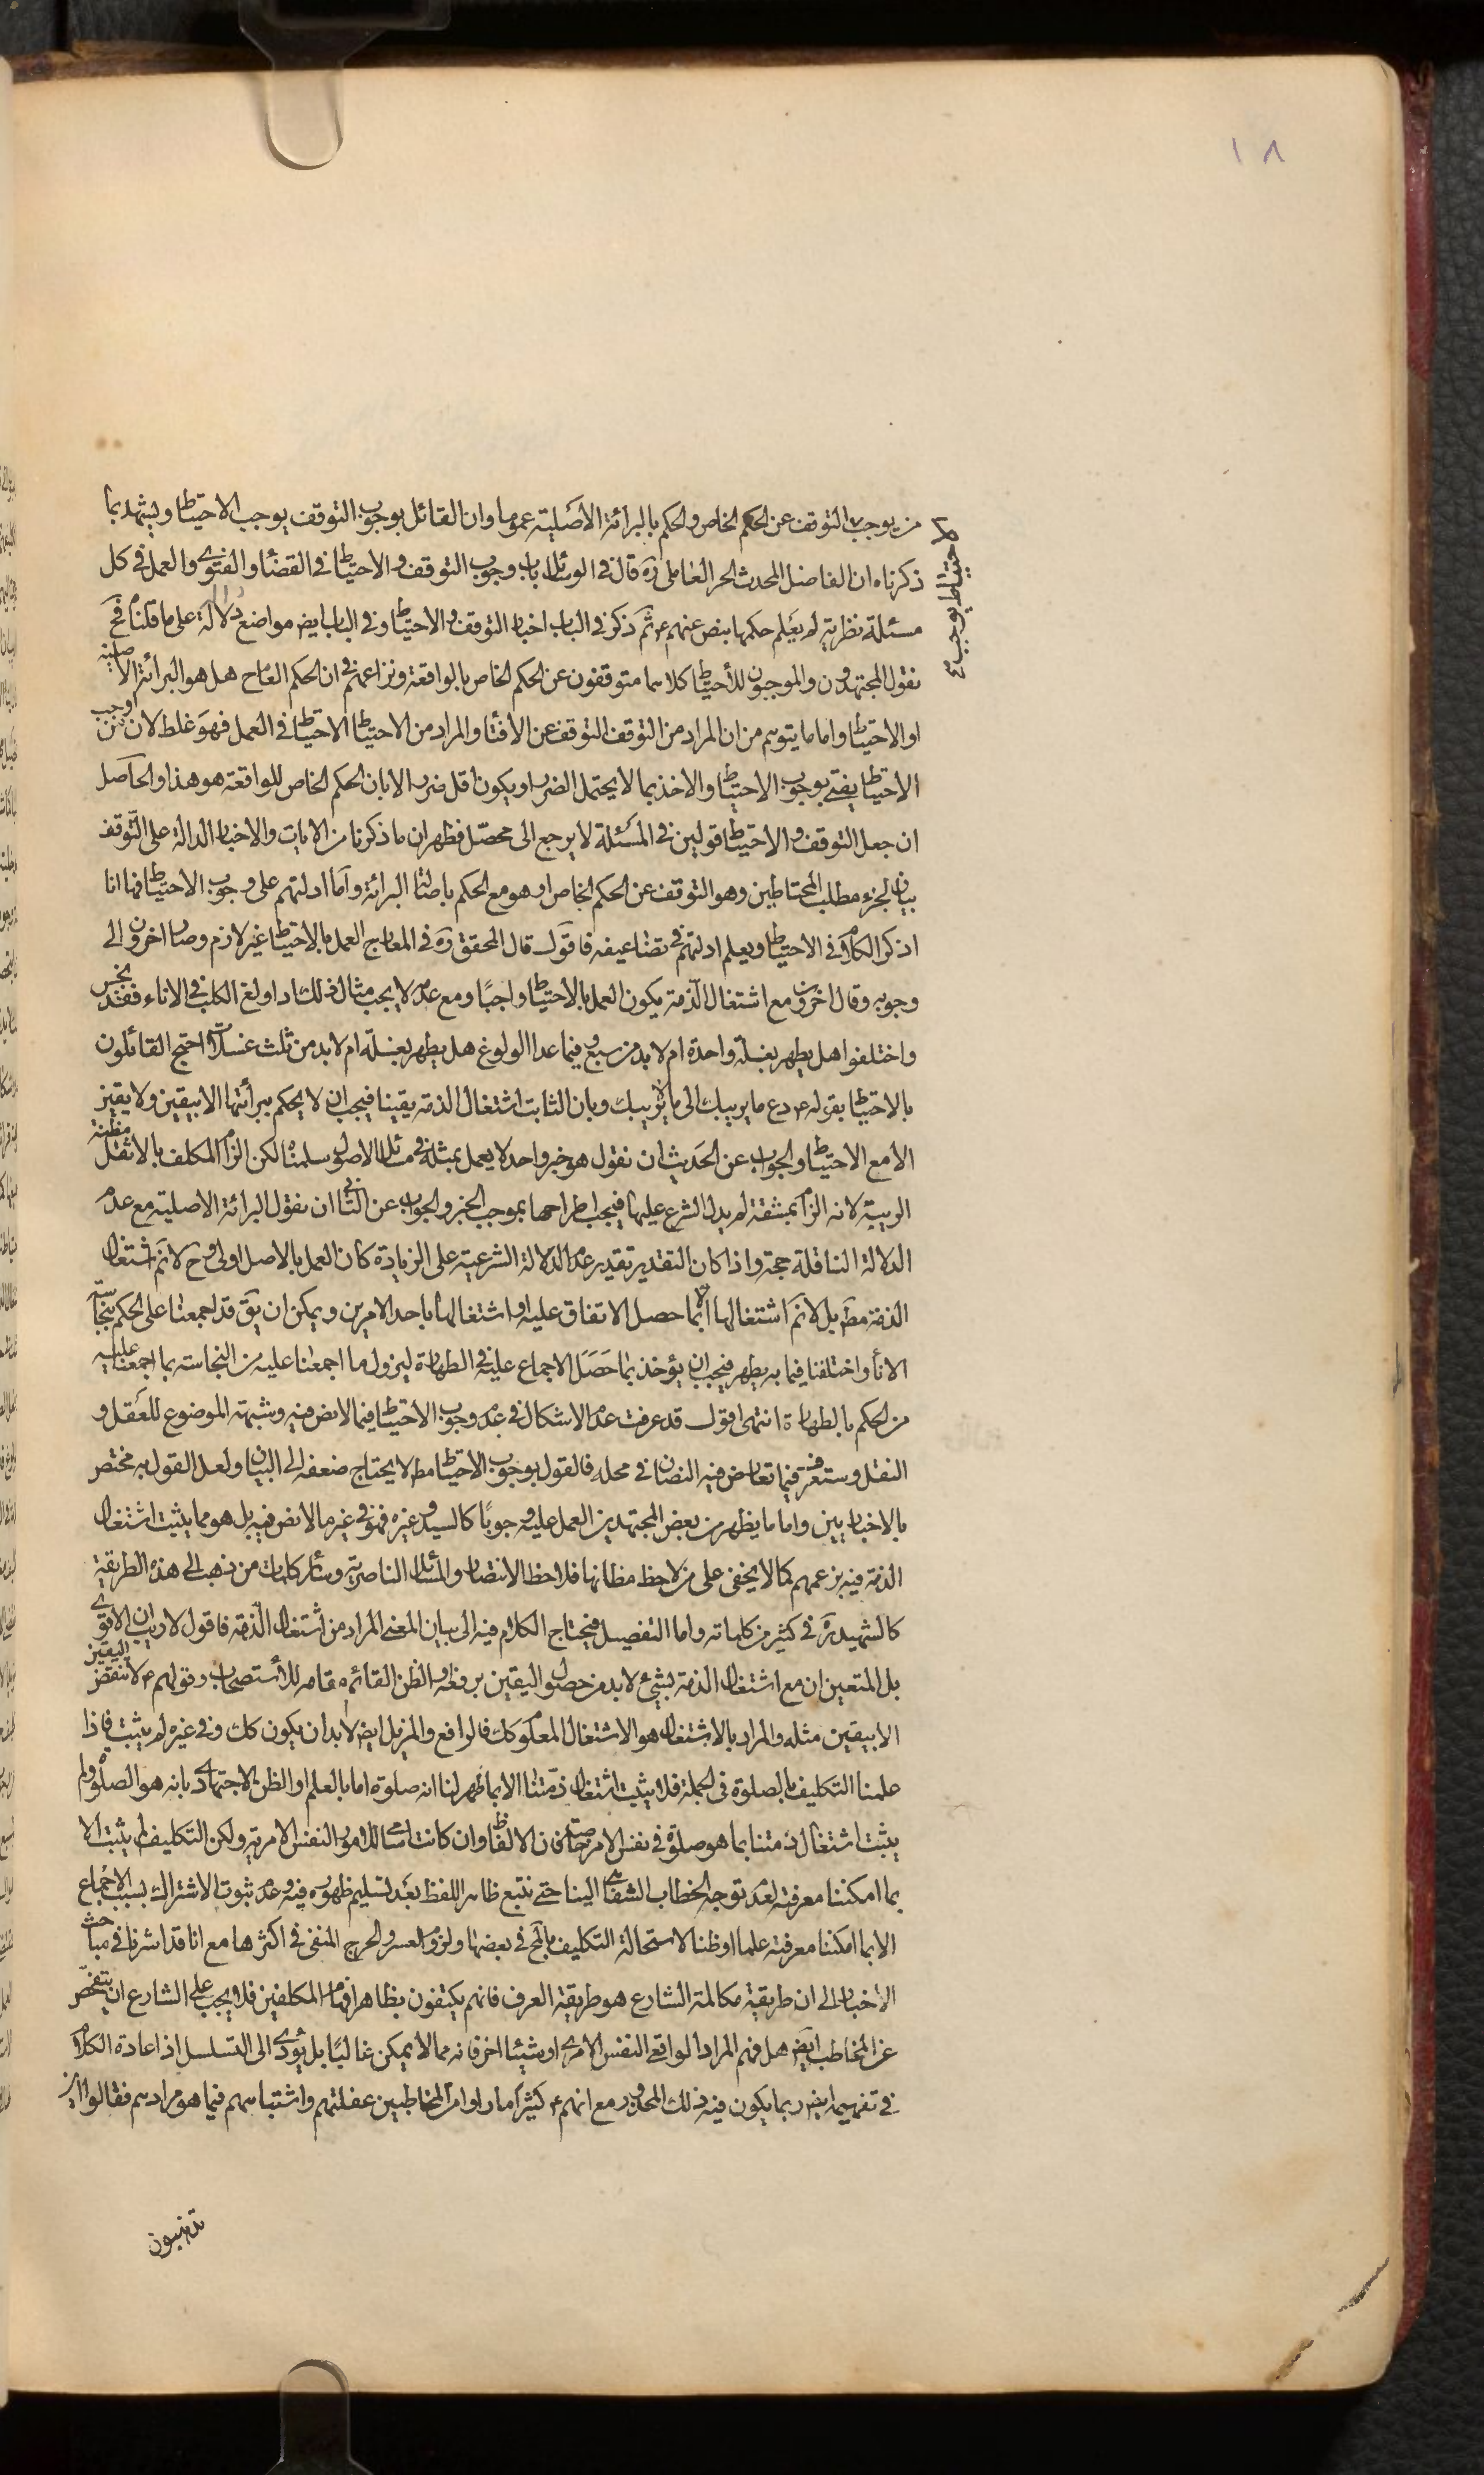 ١٨
من يوجب التوقف عن الحكم الخاص والحكم بالبرائة الاصلية عموما وان القائل بوجوب التوقف يوجب الاحتياط ويشهد بما
ذكرناه ان الفاضل المحدث الحر العاملي ره قال في الوسائل باب وجوب التوقف والاحتياط في القضاء والفتوى والعمل في كل
مسئلة نظرية لم يعلم حكمها بنص عنهم ع ثم ذكر في الباب اخبار التوقف والاحتياط وفي الباب ايض مواضع دلالة على ما قلنا فح
نقول المجتهدون والموجبون للاحتياط كلاهما متوقفون عن الحكم الخاص بالواقعة ونزاعهم في ان الحكم العام ح هل هو البرائة الاصلية
او الاحتياط واما ما يتوهم من ان المراد من التوقف التوقف عن الافتاء والمراد من الاحتياط الاحتياط في العمل فهو غلط لان من اوجب
الاحتياط يفتي بوجوب الاحتياط والاخذ بما لا يحتمل الضرر او يكون اقل ضررا لا بان الحكم الخاص للواقعة هو هذا والحاصل
ان جعل التوقف والاحتياط قولين في المسئلة لا يرجع الى محصل فظهر ان ما ذكرنا من الايات والاخبار الدالة على التوقف
بيان لجزء مطلب المحتاطين وهو التوقف عن الحكم الخاص او هو مع الحكم باصالة البرائة واما ادلتهم على وجوب الاحتياط فها انا
اذكر الكلام في الاحتياط ويعلم ادلتهم في تضاعيفه فاقول قال المحقق ره في المعارج العمل بالاحتياط غير لازم وصار اخرون الى
وجوبه وقال اخرون مع اشتغال الذمة يكون العمل بالاحتياط واجبا ومع عدمه لا يجب مثال ذلك اذا ولغ الكلب في الاناء فقد نجس
واختلفوا هل يطهر بغسلة واحدة ام لا بد من سبع وفيما عدا الولوغ هل يطهر بغسلة ام لا بد من ثلث غسلات احتج القائلون
بالاحتياط بقوله ع دع ما يريبك الى ما لا يريبك وبان الثابت اشتغال الذمة يقينا فيجب ان لا يحكم ببرائتها الا بيقين ولا يقين
الا مع الاحتياط والجواب عن الحديث ان نقول هو خبر واحد لا يعمل بمثله في مسائل الاصول سلمناه لكن الزام المكلف بالاثقل مظنة
الريبة لانه الزام بمشقة لم يدل الشرع عليها فيجب اطراحها بموجب الخبر والجواب عن الثاني ان نقول البرائة الاصلية مع عدم
الدلالة الناقلة حجة واذا كان التقدير تقدير عدم الدلالة الشرعية على الزيادة كان العمل بالاصل اولى وح لا نم اشتغال
الذمة مط بل لا نم اشتغالها الا بما حصل الاتفاق عليه او اشتغالها باحد الامرين ويمكن ان يق قد اجمعنا على الحكم بنجاسة
الاناء واختلفنا فيما به يطهر فيجب ان يؤخذ بما حصل الاجماع عليه في الطهارة ليزول ما اجمعنا عليه من النجاسة بما اجمعنا عليه
من الحكم بالطهارة انتهى اقول قد عرفت عدم الاشكال في عدم وجوب الاحتياط فيما لا نص فيه وشبهة الموضوع للعقل و
النقل وستعرف فيما تعارض فيه النصان في محله فالقول بوجوب الاحتياط مط لا يحتاج ضعفه الى البيان ولعل القول به مختص
بالاخباريين واما ما يظهر من بعض المجتهدين العمل عليه وجوبا كالسيد وغيره فهو في غير ما لا نص فيه بل هو مما يثبت اشتغال
الذمة فيه بزعمهم كما لا يخفى على من لاحظ مظانها فلاحظ الانتصار والمسائل الناصرية وسائر كلمات من ذهب الى هذه الطريقة
كالشهيد ره في كثير من كلماته واما التفصيل فيحتاج الكلام فيه الى بيان المعنى المراد من اشتغال الذمة فاقول لا ريب ان الاقوى
بل المتعين ان مع اشتغال الذمة بشيء لا بد من حصول اليقين برفعه او الظن القائم مقامه للاستصحاب وقولهم ع لا تنقض اليقين
الا بيقين مثله والمراد بالاشتغال هو الاشتغال المعلوم وكك فالرافع والمزيل ايض لا بد ان يكون كك وفي غيره لم يثبت فاذا
علمنا التكليف بالصلوة في الجملة فلا يثبت اشتغال ذمتنا الا بما ظهر لنا انه صلوة اما بالعلم او الظن الاجتهادي بانه هو الصلوة ولم
يثبت اشتغال ذمتنا بما هو صلوة في نفس الامر فان الالفاظ وان كانت اسامي للامور النفس الامرية ولكن التكليف لم يثبت الا
بما امكننا معرفته لعدم توجه الخطاب الشفاهي الينا حتى نتبع ظاهر اللفظ بعد تسليم ظهوره فيه وعدم ثبوت الاشتراك بسبب الاجماع
الا بما امكننا معرفته علما او ظنا لاستحالة التكليف بالمح في بعضها ولزوم العسر والحرج المنفي في اكثرها مع انا قد اشرنا في مباحث
الاخبار الى ان طريقة مكالمة الشارع هو طريقة العرف فانهم يكتفون بظاهر افهام المكلفين فلا يجب على الشارع ان يتفحص
عن المخاطب ايض هل فهم المراد الواقعي النفس الامري او شيئا اخر فانه مما لا يمكن غالبا بل يؤدي الى التسلسل اذ اعادة الكلام
في تفهيمه ايض ربما يكون فيه ذلك المحذور مع انهم ع كثيرا ما راوا من المخاطبين غفلتهم واشتباههم فيما هو مرادهم فقالوا اين
تذهبون